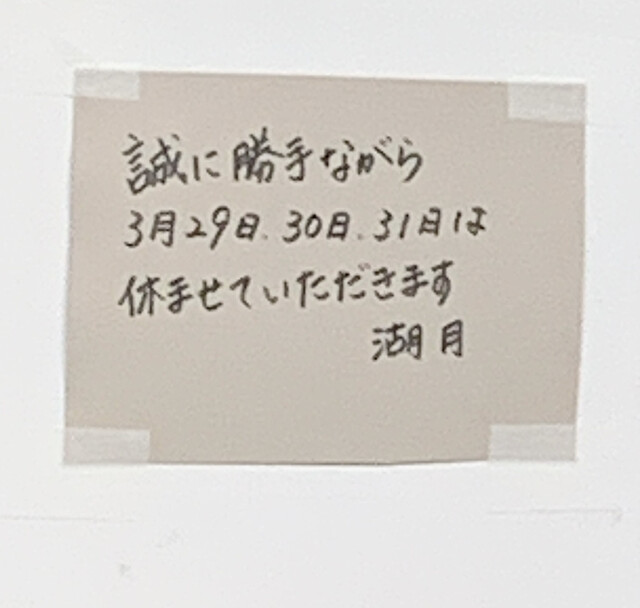 誠に勝手ながら
3月29日、30日、31日は
休ませていただきます
湖月